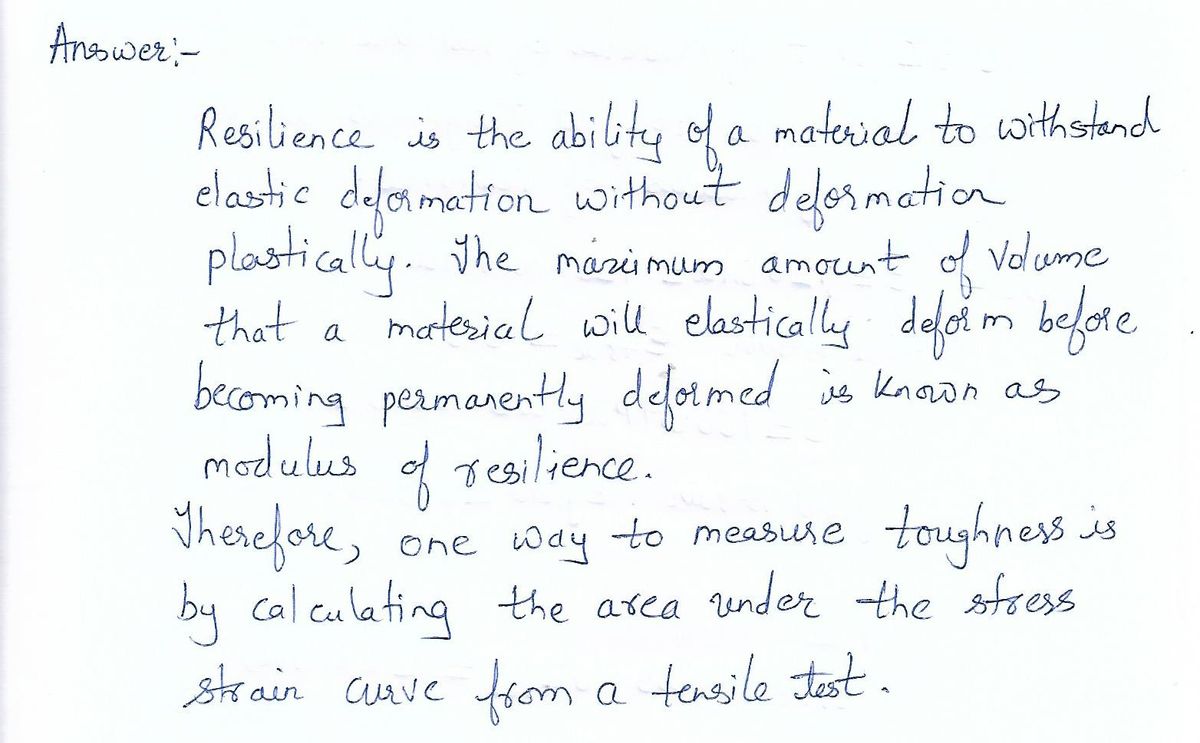 Answer:-
Resilience is the ability of a material to withstand
elastic deformation without deformation
plastically. The maximum amount of volume
that a material will elastically deform before
becoming permanently deformed is known as
modulus of resilience.
Therefore, one way to measure toughness is
by calculating the area under the stress
strain curve from a tensile test.